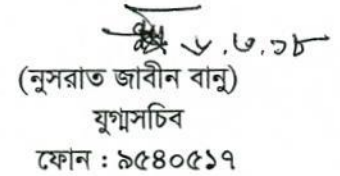 ৬.৩.১৮
(নুসরাত জাবীন বানু)
যুগ্মসচিব
ফোন : ৯৫৪০৫১৭